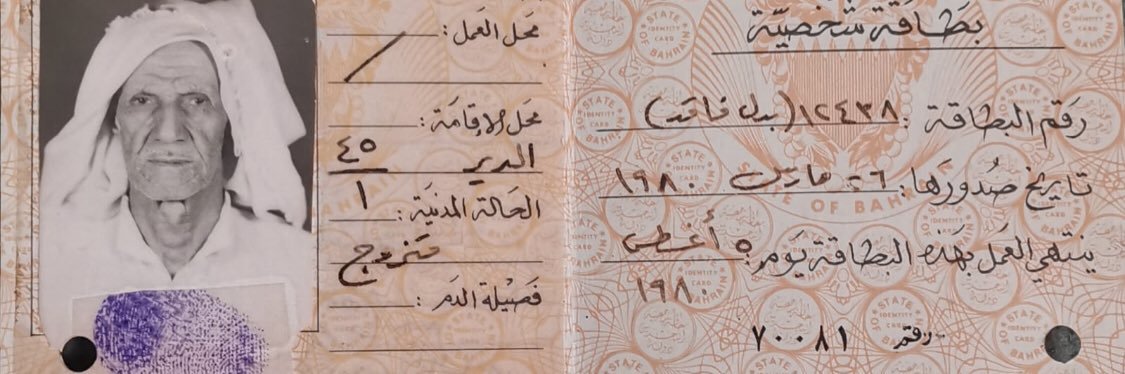 محل العمل:
محل الإقامة:
الدير ٤٥
الحالة المدنية: ١
متزوج
فصيلة الدم:
بطاقة شخصية
رقم البطاقة: ١٢٤٣٨ (بدل فاقد)
تاريخ صدورها: ٦ مارس ١٩٨٠
ينتهي العمل بهذه البطاقة يوم: ٥ أغسطس
١٩٨٠
رقم ٧٠٠٨١
STATE OF BAHRAIN
IDENTITY CARD